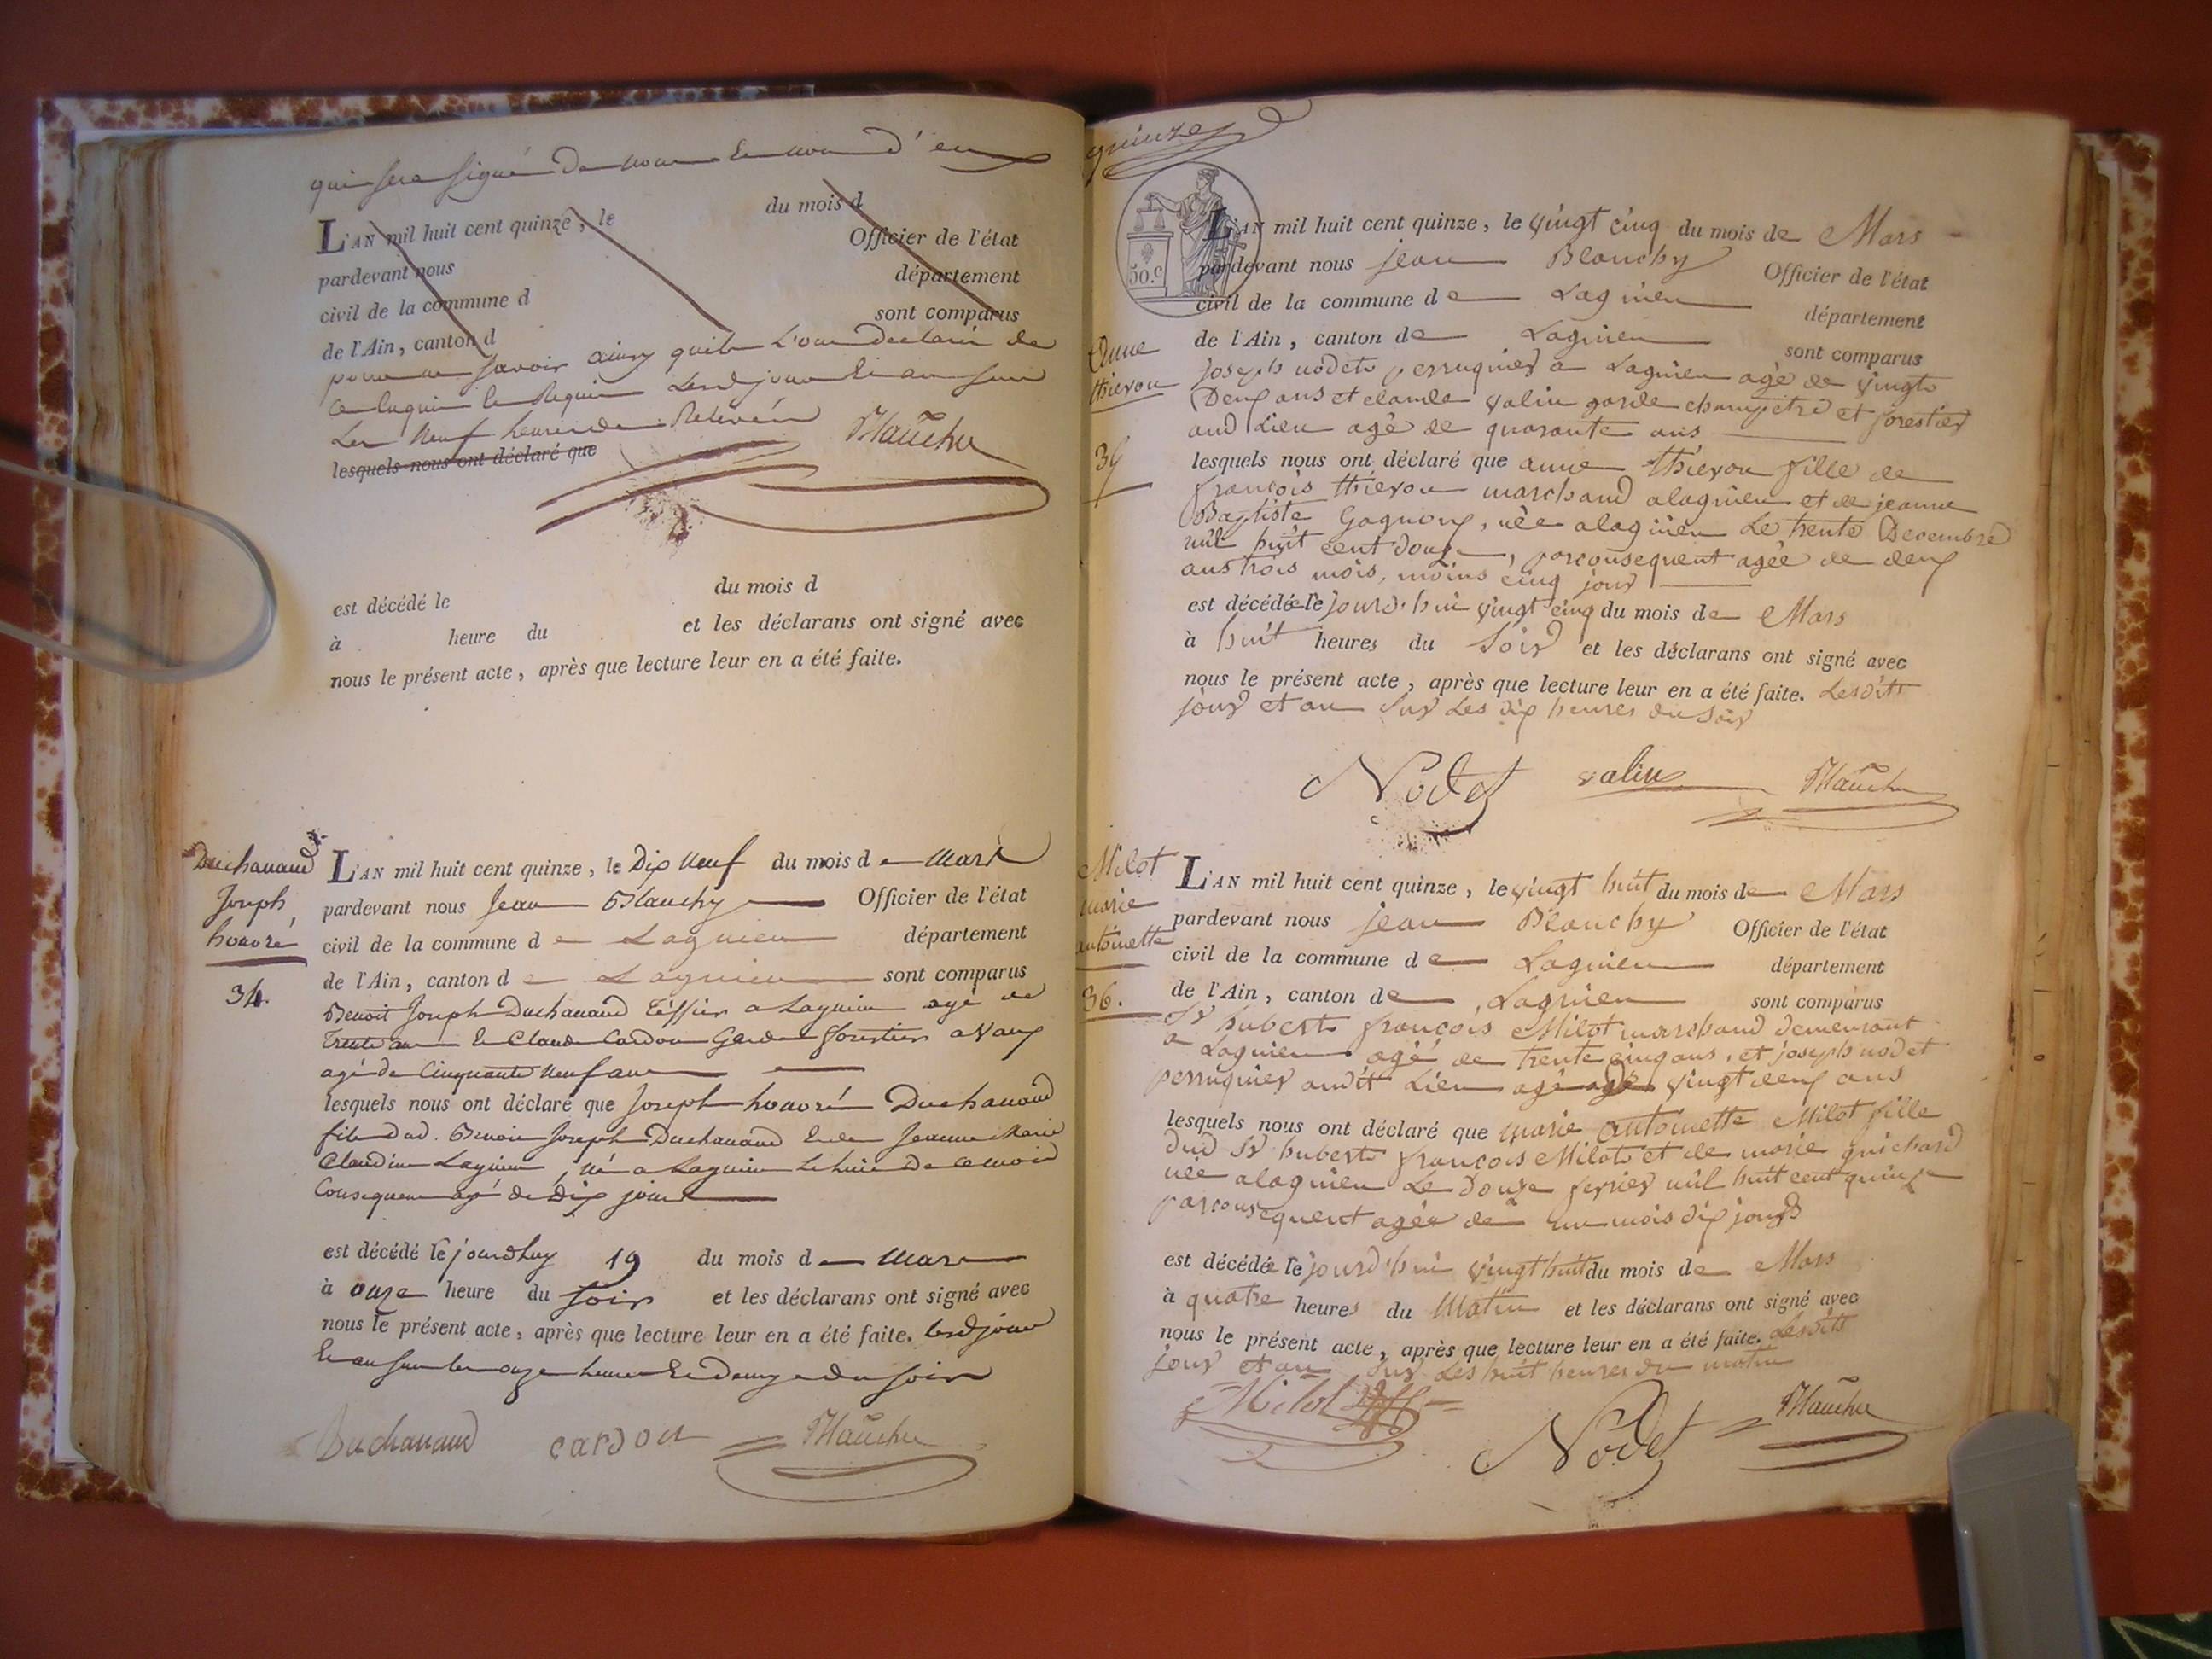 qui sera signé de nous et non d'eux
L'AN mil huit cent quinze, le du mois d
pardevant nous Officier de l'état
civil de la commune d département
de l'Ain, canton d sont comparus
pour ne savoir ainsy quils l'ont declaré de
ce enquis et requis lesd jour et an sur
les neuf heures de
Blanchy
lesquels nous ont déclaré que
est décédé le du mois d
à heure du et les déclarans ont signé avec
nous le présent acte, après que lecture leur en a été faite.
Duchanaud
Joseph
honoré
34.
L'AN mil huit cent quinze, le Dix neuf du mois de Mars
pardevant nous Jean Blanchy Officier de l'état
civil de la commune de Lagnieu département
de l'Ain, canton de Lagnieu sont comparus
Benoit Joseph Duchanaud a Lagnieu agé de
Trente ans et Claude Cardon Garde forestier a Vaux
agé de Cinquante neuf ans
lesquels nous ont déclaré que Joseph honoré Duchanaud
fils dud. Benoit Joseph Duchanaud et de Jeanne Marie
Claudine Lagnieu, né a Lagnieu le huit de ce mois
Consequem agé de Dix jours
est décédé le jourdhuy 19 du mois de Mars
à onze heure du soir et les déclarans ont signé avec
nous le présent acte, après que lecture leur en a été faite. lesd jour
et an sur les onze heures et demy du soir
Duchanaud cardon Blanchy
quinze
50.c
Anne
thievon
35
L'AN mil huit cent quinze, le vingt cinq du mois de Mars
pardevant nous jean Blanchy Officier de l'état
civil de la commune de Lagnieu département
de l'Ain, canton de Lagnieu sont comparus
joseph nodet perruquier a Lagnieu agé de vingt
Deux ans et claude valin garde champetre et forestier
aud Lieu agé de quarante ans
lesquels nous ont déclaré que anne thievon fille de
françois thievon marchand alagnieu et de jeanne
Baptiste Gagnoux, née alagnieu Le trente Decembre
mil huit cent douze, parconsequent agée de deux
ans trois mois, moins cinq jour
est décédée le jourd'hui vingt cinq du mois de Mars
à huit heures du Soir et les déclarans ont signé avec
nous le présent acte, après que lecture leur en a été faite. Lesdits
jour et an sur Les dix heures du soir
Nodet valin Blanchy
Milot
marie
antoinette
36.
L'AN mil huit cent quinze, le vingt huit du mois de Mars
pardevant nous jean Blanchy Officier de l'état
civil de la commune de Lagnieu département
de l'Ain, canton de Lagnieu sont comparus
Sr hubert françois Milot marchand demeurant
a Lagnieu agé de trente cinq ans, et joseph nodet
perruquier audit Lieu agé agé vingt deux ans
lesquels nous ont déclaré que marie antoinette Milot fille
dud Sr hubert françois Milot et de marie guichard
née alagnieu Le Douze fevrier mil huit cent quinze
parconsequent agée de un mois dix jours
est décédée le jourd'hui vingt huit du mois de Mars
à quatre heures du Matin et les déclarans ont signé avec
nous le présent acte, après que lecture leur en a été faite. Lesdits
jour et an sur Les huit heures du matin
Milot Nodet Blanchy